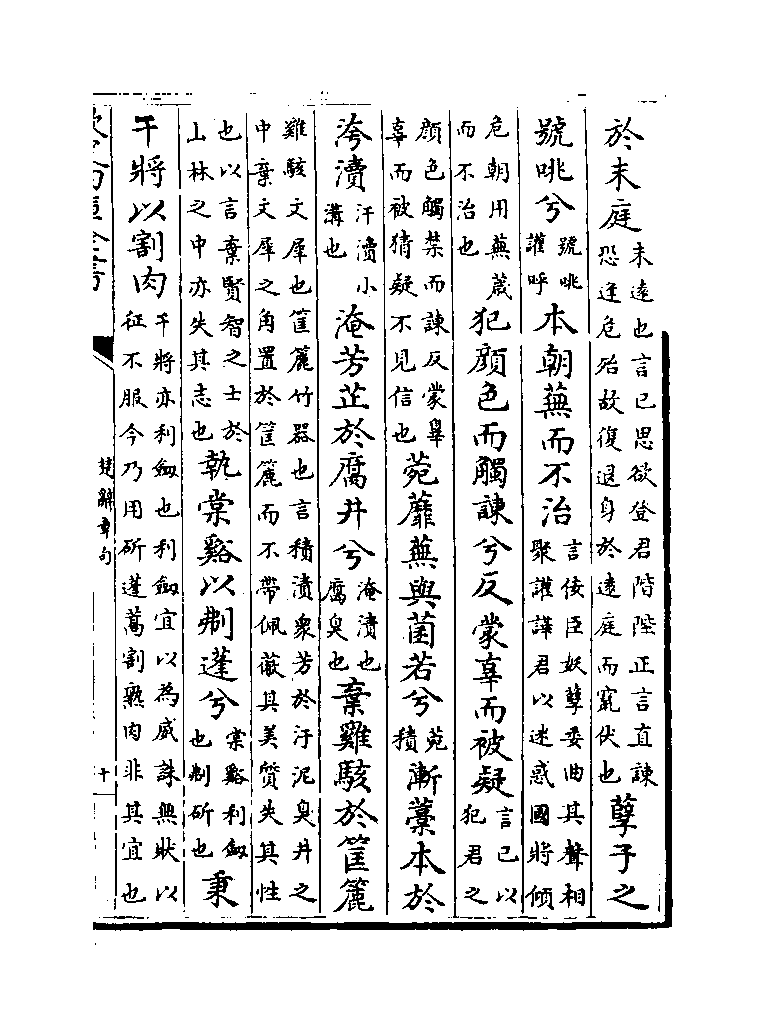 於末庭末遠也言已思欲登君階陛正言直諫恐逢危殆故復退身於遠庭而竄伏也孽子之
號咷兮號咷讙呼本朝蕪而不治言佞臣妖孽委曲其聲相聚讙譁君以迷惑國將傾
危朝用蕪薉而不治也犯顔色而觸諫兮反蒙辜而被疑言已以犯君之
顔色觸禁而諫反蒙辠辜而被猜疑不見信也菀蘼蕪與菌若兮菀積漸藁本於
洿瀆汙瀆小溝也淹芳芷於腐井兮淹漬也腐臭也棄雞駭於筐簏
雞駭文犀也筐簏竹器也言積漬衆芳於汙泥臭井之中棄文犀之角置於筐簏而不帶佩蔽其美質失其性
也以言棄賢智之士於山林之中亦失其志也執棠谿以刜蓬兮棠谿利劔也刜斫也秉
干將以割肉干將亦利劔也利劔宜以為威誅無狀以征不服今乃用斫蓬蒿割熟肉非其宜也
欽定四庫全書
楚辭章句
十